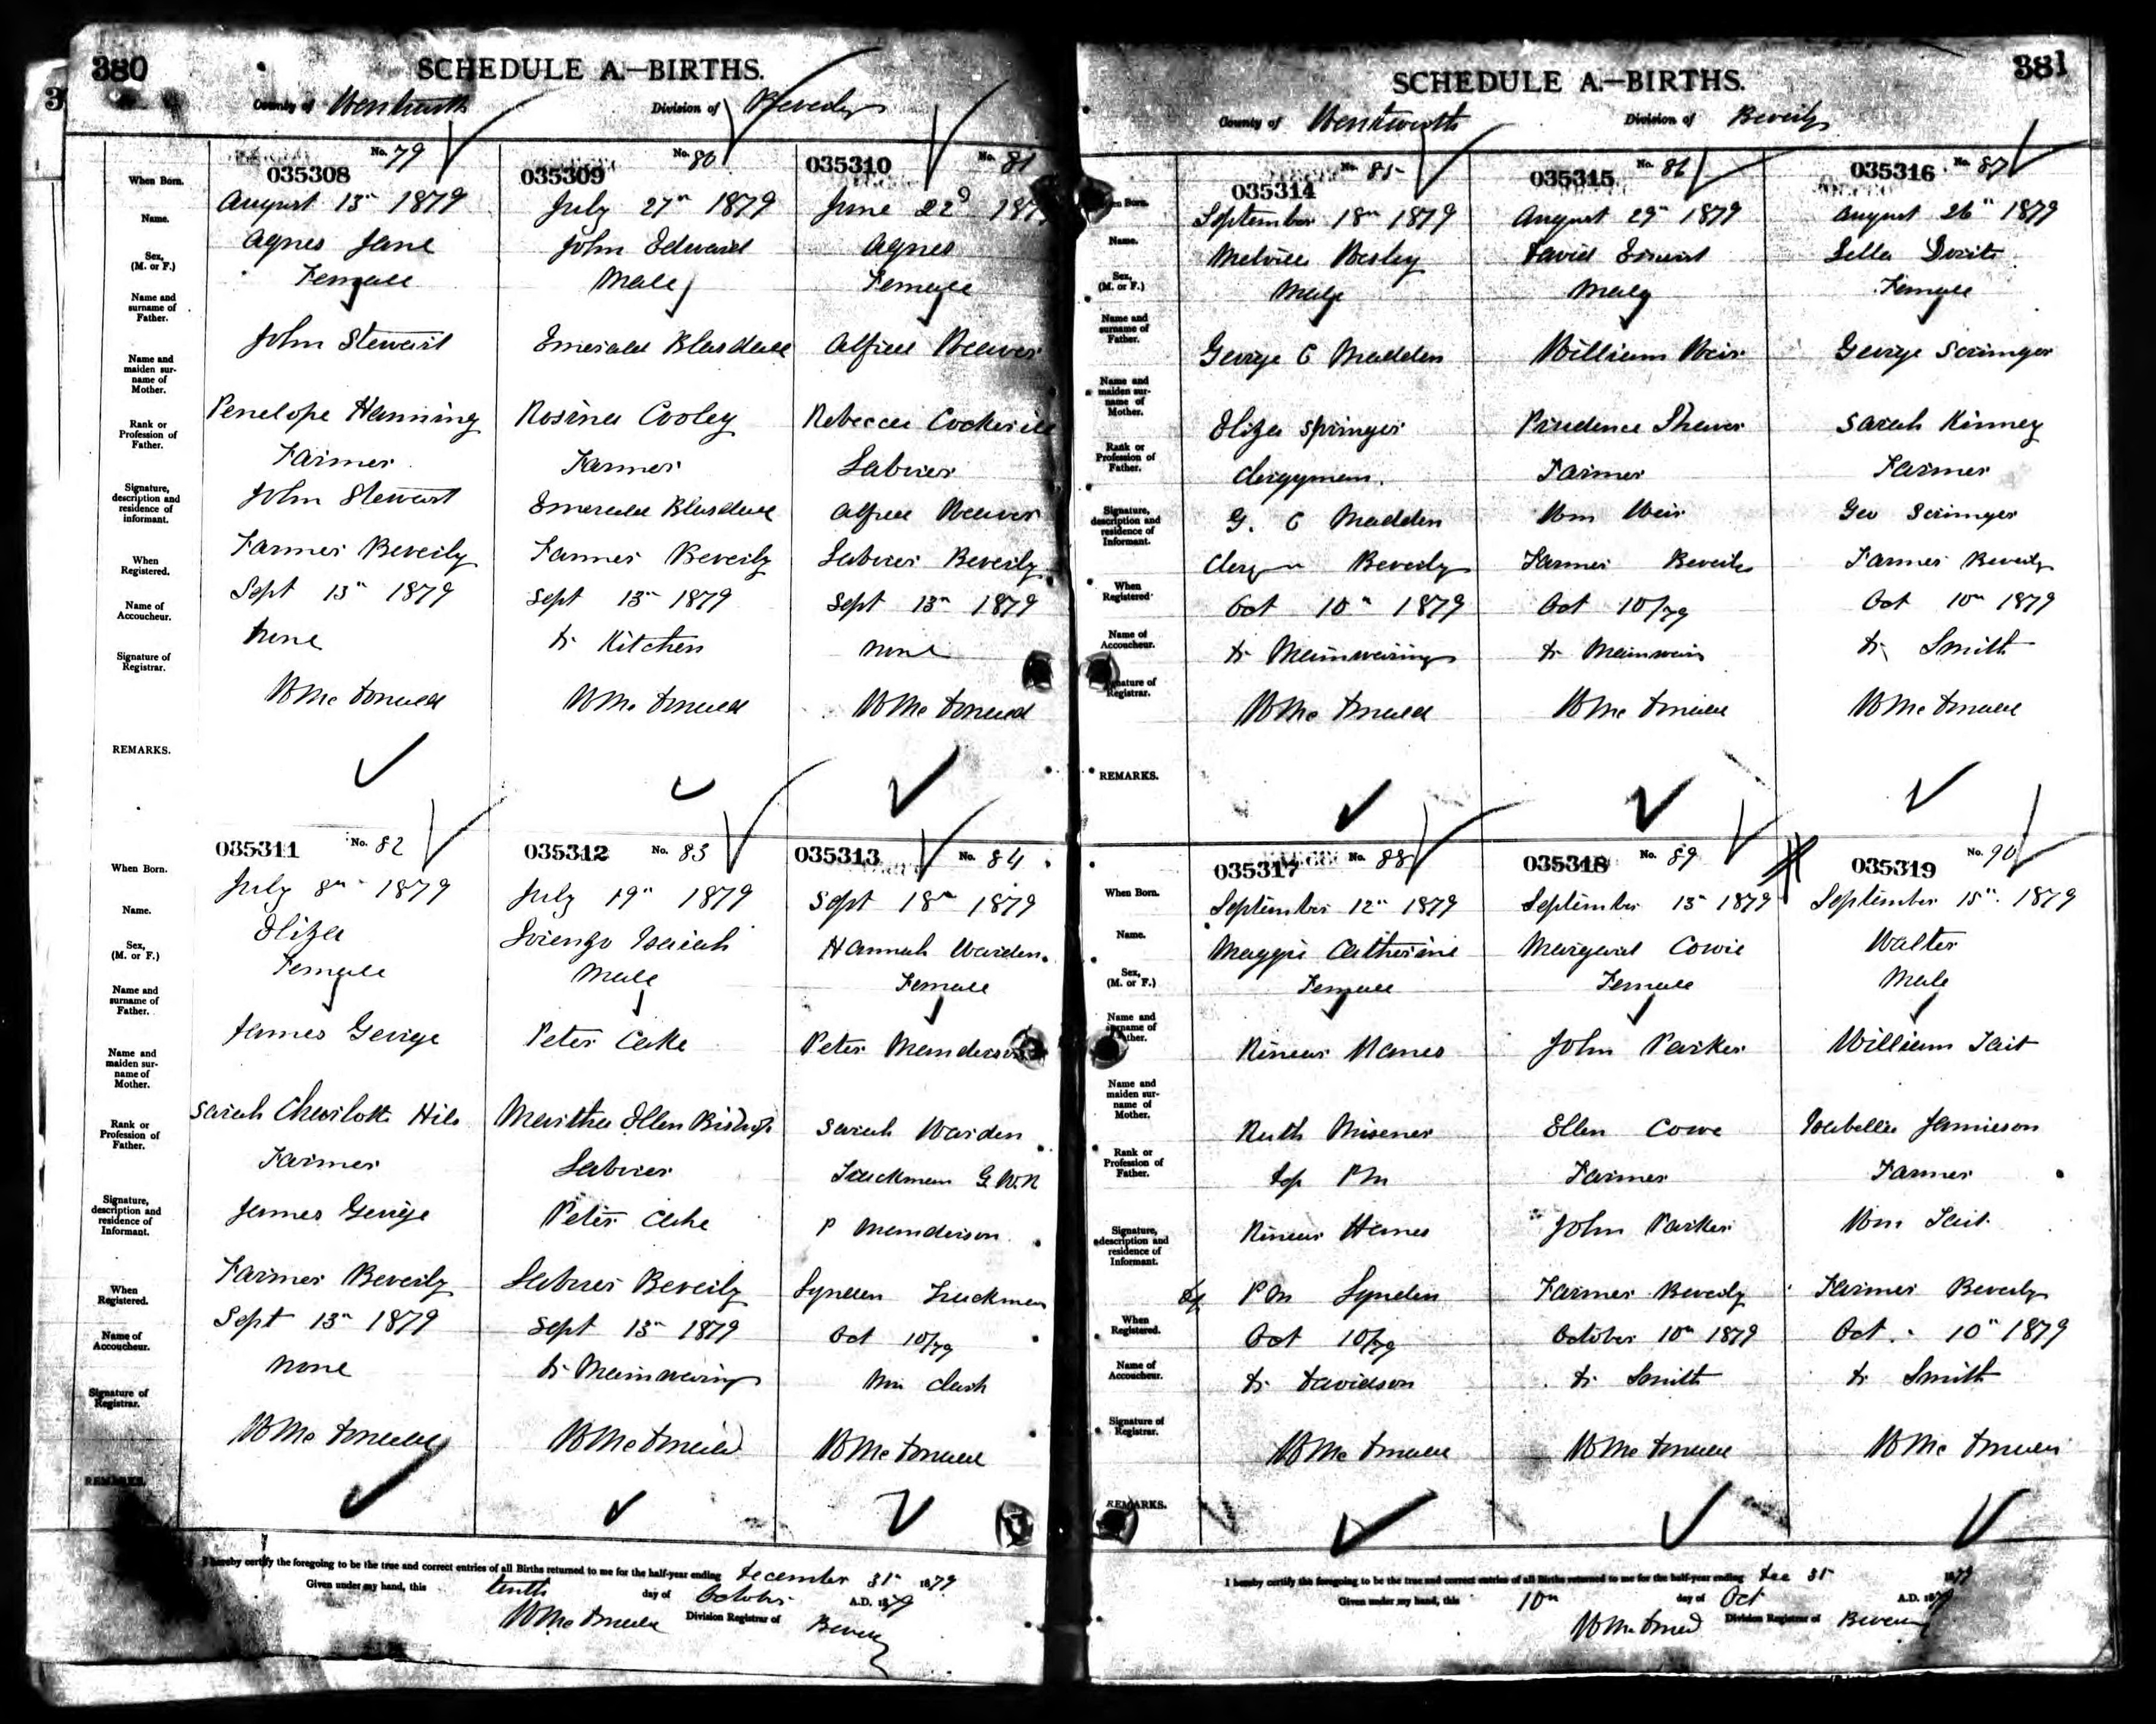 380
SCHEDULE A.—BIRTHS.
County of Wentworth Division of Beverly
035308 No. 79 035309 No. 80 035310 No. 81
When Born. August 13th 1879 July 27th 1879 June 22d 1879
Name. Agnes Jane John Edward Agnes
Sex, (M. or F.) Female Male Female
Name and surname of Father. John Stewart Emerald Blasdell Alfred Weaver
Name and maiden surname of Mother. Penelope Hanning Rosina Cooley Rebecca
Rank or Profession of Father. Farmer Farmer Laborer
Signature, description and residence of informant. John Stewart Emerald Blasdell Alfred Weaver
Farmer Beverly Farmer Beverly Laborer Beverly
When Registered. Sept 13th 1879 Sept 13th 1879 Sept 13th 1879
Name of Accoucheur. None Dr Kitchen None
Signature of Registrar. W McDonald W McDonald W McDonald
REMARKS.
035311 No. 82 035312 No. 83 035313 No. 84
When Born. July 8th 1879 July 19th 1879 Sept 18th 1879
Name. Eliza Lorenzo Isaiah Hannah Warden
Sex, (M. or F.) Female Male Female
Name and surname of Father. James George Peter Cake Peter Manderson
Name and maiden surname of Mother. Sarah Charlotte Martha Ellen Bishop Sarah Warden
Rank or Profession of Father. Farmer Laborer Trackman G.W.R
Signature, description and residence of Informant. James George Peter Cake P Manderson
Farmer Beverly Laborer Beverly Lynden Trackman
When Registered. Sept 13th 1879 Sept 13th 1879 Oct 10/79
Name of Accoucheur. None Dr Mainwaring Clark
Signature of Registrar. W McDonald W McDonald W McDonald
REMARKS.
I hereby certify the foregoing to be the true and correct entries of all Births returned to me for the half-year ending December 31st 1879
Given under my hand, this tenth day of October A.D. 1879
W McDonald Division Registrar of Beverly
381
SCHEDULE A.—BIRTHS.
County of Wentworth Division of Beverly
035314 No. 85 035315 No. 86 035316 No. 87
When Born. September 18th 1879 August 29th 1879 August 26th 1879
Name. Melville Wesley David Ernest Lella
Sex, (M. or F.) Male Male Female
Name and surname of Father. George C Madden William Weir George Scrimger
Name and maiden surname of Mother. Eliza Springer Prudence Shaver Sarah Kinney
Rank or Profession of Father. Clergyman. Farmer Farmer
Signature, description and residence of Informant. G. C Madden Wm Weir Geo Scrimger
Beverly Farmer Beverly Farmer Beverly
When Registered. Oct 10th 1879 Oct 10/79 Oct 10th 1879
Name of Accoucheur. Dr Mainwaring Dr Mainwaring Dr Smith
Signature of Registrar. W McDonald W McDonald W McDonald
REMARKS.
035317 No. 88 035318 No. 89 035319 No. 90
When Born. September 12th 1879 September 13th 1879 September 15th 1879
Name. Maggie Catherine Margaret Cowie Walter
Sex, (M. or F.) Female Female Male
Name and surname of Father. Hanes John Parker William Tait
Name and maiden surname of Mother. Ruth Misener Ellen Cowe Isabella Jamieson
Rank or Profession of Father. Dep PM Farmer Farmer
Signature, description and residence of Informant. Hanes John Parker Wm Tait
PM Lynden Farmer Beverly Farmer Beverly
When Registered. Oct 10/79 October 10th 1879 Oct. 10th 1879
Name of Accoucheur. Dr Davidson Dr Smith Dr Smith
Signature of Registrar. W McDonald W McDonald W McDonald
REMARKS.
I hereby certify the foregoing to be the true and correct entries of all Births returned to me for the half-year ending Dec 31st 1879
Given under my hand, this 10th day of Oct A.D. 1879
W McDonald Division Registrar of Beverly